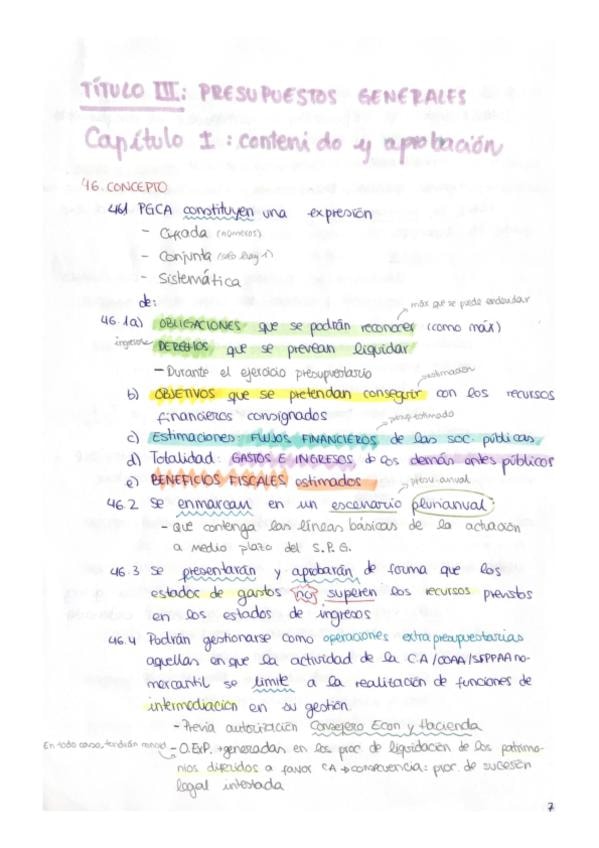 TÍTULO III: PRESUPUESTOS GENERALES
Capítulo I: contenido y aprobación
46. CONCEPTO
46.1 PGCA constituyen una expresión
- Cifrada (números)
- Conjunta (sólo hay 1)
- Sistemática
de:
máx que se puede endeudar
46.1a) OBLIGACIONES que se podrán reconocer (como máx)
ingresos DERECHOS que se prevean liquidar
- Durante el ejercicio presupuestario
estimación
b) OBJETIVOS que se pretendan conseguir con los recursos
financieros consignados
presup. estimado
c) Estimaciones: FLUJOS FINANCIEROS de las soc. públicas
d) Totalidad: GASTOS E INGRESOS d los demás entes públicos
e) BENEFICIOS FISCALES estimados
presu. anual
46.2 Se enmarcan en un escenario plurianual
- que contenga las líneas básicas de la actuación
a medio plazo del S.P.G.
46.3 Se presentarán y aprobarán de forma que los
estados de gastos no superen los recursos previstos
en los estados de ingresos
46.4 Podrán gestionarse como operaciones extrapresupuestarias
aquellas en que la actividad de la CA/OOAA/SSPPAA no-
mercantil se limite a la realización de funciones de
intermediación en su gestión.
- Previa autorización Consejero Econ y Hacienda
En todo caso, tendrán
- O.ExP. → generadas en los proc de liquidación de los patrimo-
nios diferidos a favor CA → consecuencia: proc. de sucesión
legal intestada
7